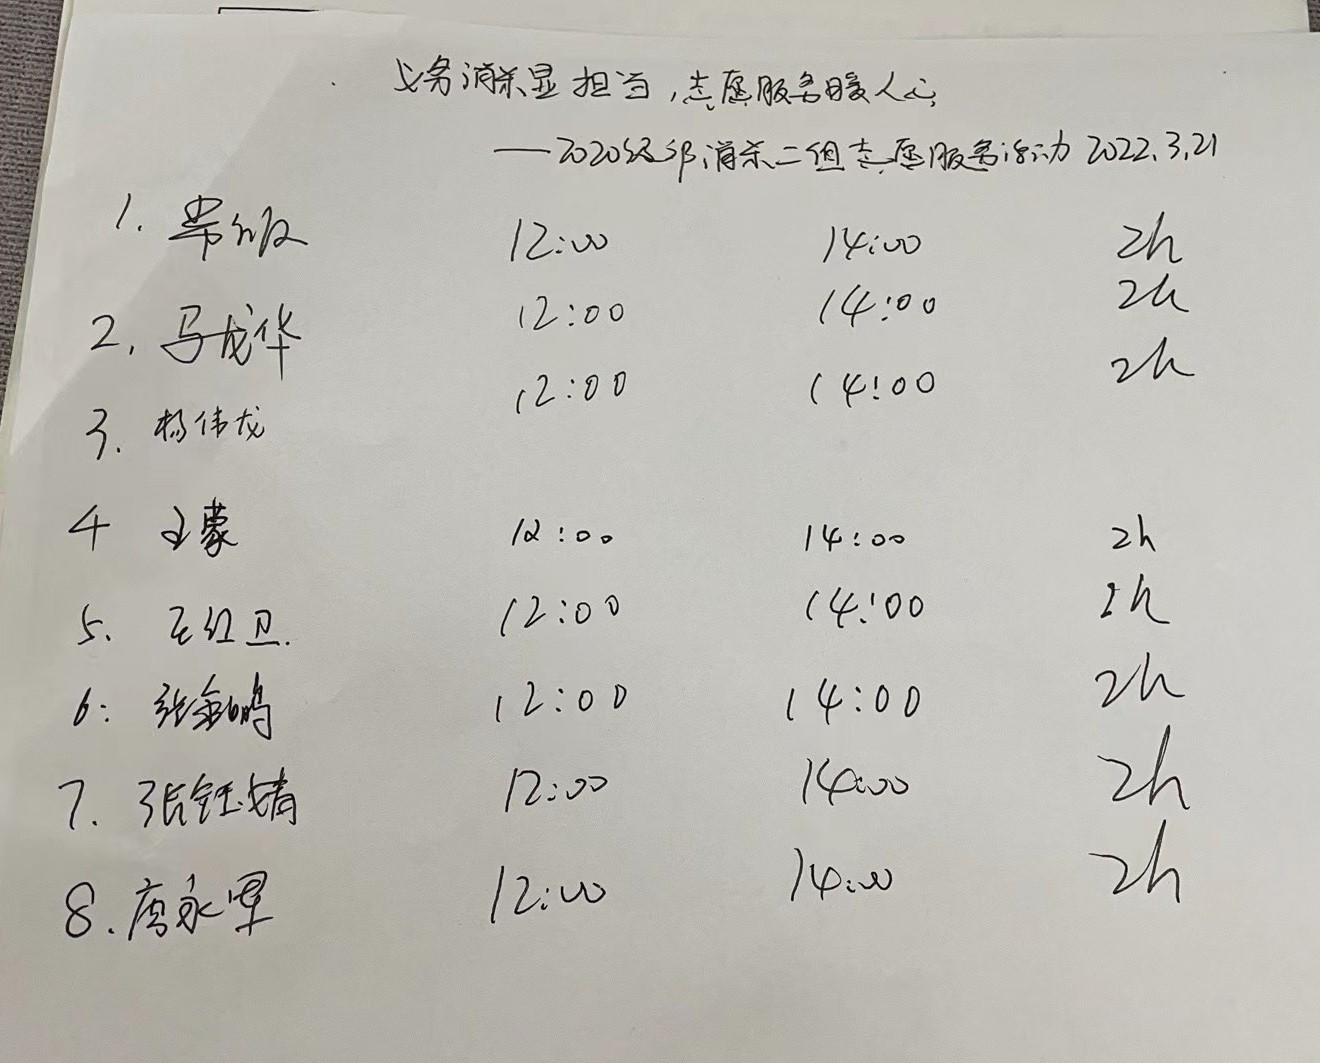 义务消杀显担当，志愿服务暖人心
——2020级 消杀二组志愿服务活动 2022.3.21
1. 12:00 14:00 2h
2. 马龙华 12:00 14:00 2h
3. 杨伟龙 12:00 14:00 2h
4 王蒙 12:00 14:00 2h
5. 王红卫. 12:00 14:00 2h
6: 张金鹏 12:00 14:00 2h
7. 张钰婧 12:00 14:00 2h
8. 永军 12:00 14:00 2h